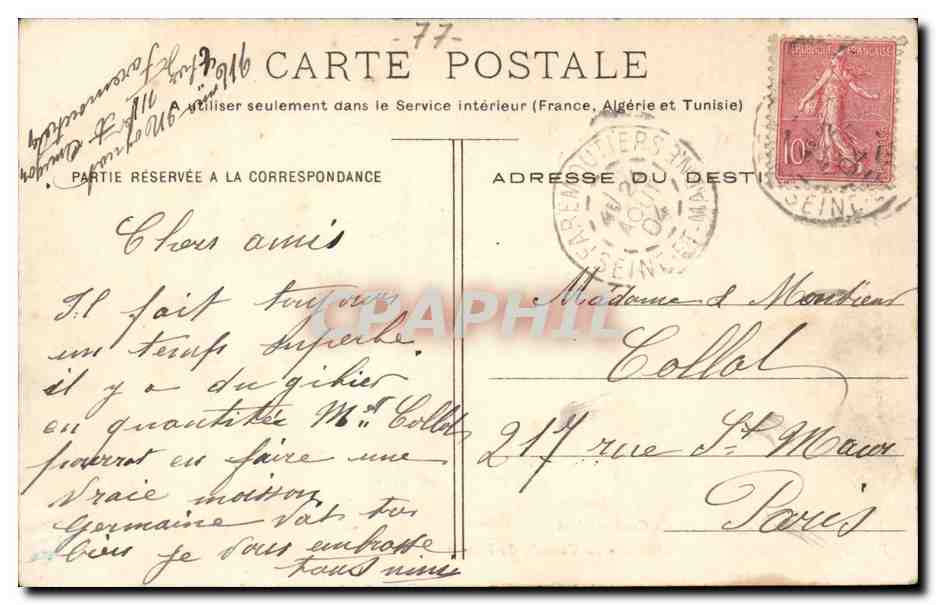 -77-
CARTE POSTALE
A utiliser seulement dans le Service intérieur (France, Algérie et Tunisie)
PARTIE RÉSERVÉE A LA CORRESPONDANCE
ADRESSE DU DESTI
REPUBLIQUE FRANÇAISE
10
SEINE
FAREMOUTIERS
SEINE-ET-MARNE
AOUT
04
Chers amis
Il fait toujours
un temps superbe
il y a du gibier
en quantitée Mr Collot
pourrat en faire une
vraie moisson
Germaine vat très
bien je vous embrasse
tous
Madame & Monsieur
Collot
217 rue St Maur
Paris
CPAPHIL